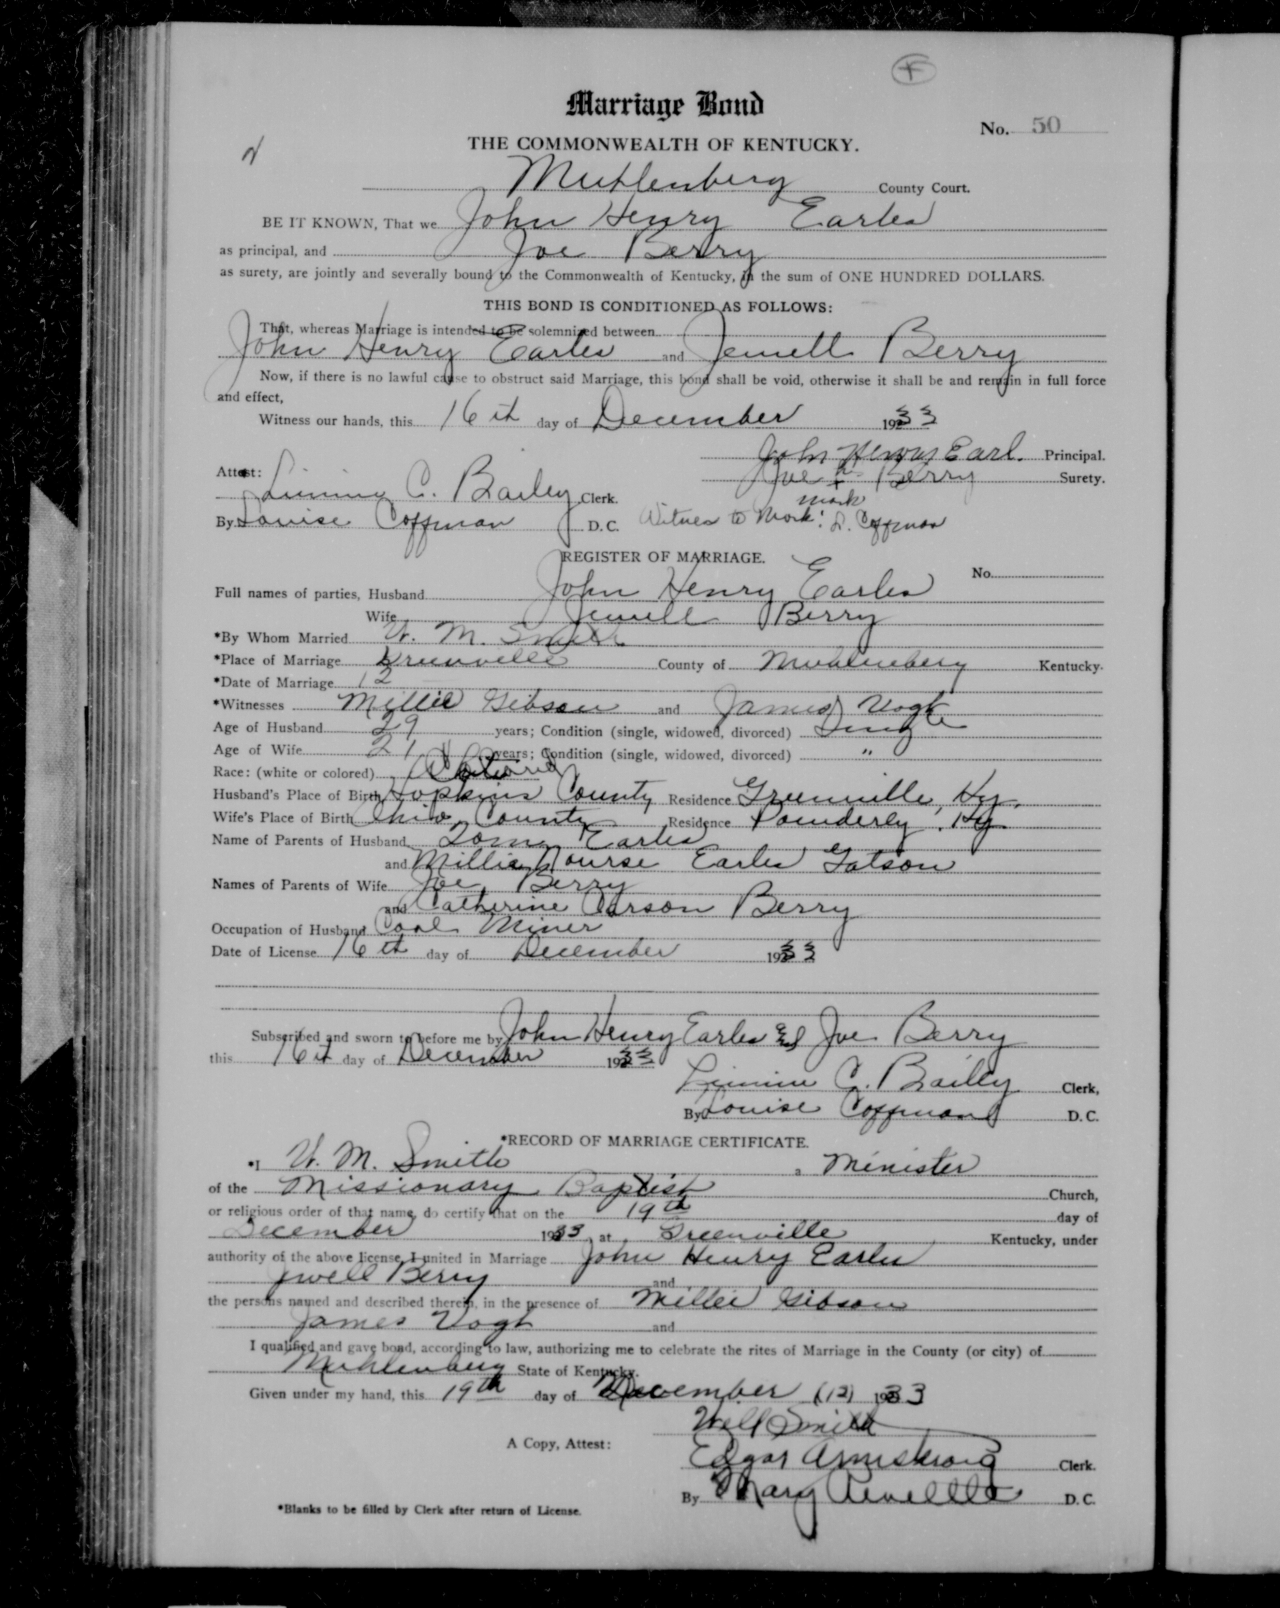 F
Marriage Bond
No. 50
THE COMMONWEALTH OF KENTUCKY.
Muhlenberg County Court.
BE IT KNOWN, That we John Henry Earles
as principal, and Joe Berry
as surety, are jointly and severally bound to the Commonwealth of Kentucky, in the sum of ONE HUNDRED DOLLARS.
THIS BOND IS CONDITIONED AS FOLLOWS:
That, whereas Marriage is intended to be solemnized between
John Henry Earles and Jewell Berry
Now, if there is no lawful cause to obstruct said Marriage, this bond shall be void, otherwise it shall be and remain in full force
and effect,
Witness our hands, this 16th day of December 1933
John Henry Earl. Principal.
Joe Berry Surety.
Attest: C. Bailey Clerk.
mark
By Louise Coffman D. C. Witness to Mark: L. Coffman
REGISTER OF MARRIAGE.
No.
Full names of parties, Husband John Henry Earles
Wife Jewell Berry
*By Whom Married W. M. Smith
*Place of Marriage Greenville County of Muhlenberg Kentucky.
*Date of Marriage 12
*Witnesses Millie Gibson and James Vogt
Age of Husband 29 years; Condition (single, widowed, divorced) Single
Age of Wife 21 years; Condition (single, widowed, divorced) "
Race: (white or colored) Colored
Husband's Place of Birth Hopkins County Residence Greenville, Ky.
Wife's Place of Birth Ohio County Residence Powderly, Ky.
Name of Parents of Husband Earles
and Millie Nourse Earles Gatson
Names of Parents of Wife Joe Berry
and Catherine Carson Berry
Occupation of Husband Coal Miner
Date of License 16th day of December 1933
Subscribed and sworn to before me by John Henry Earles and Joe Berry
this 16th day of December 1933
C. Bailey Clerk,
By Louise Coffman D. C.
*RECORD OF MARRIAGE CERTIFICATE.
*I W. M. Smith, Minister
of the Missionary Baptist Church,
or religious order of that name, do certify that on the 19th day of
December 1933 at Greenville Kentucky, under
authority of the above license, I united in Marriage John Henry Earles
Jwell Berry and
the persons named and described therein, in the presence of Millie Gibson
James Vogt and
I qualified and gave bond, according to law, authorizing me to celebrate the rites of Marriage in the County (or city) of
Muhlenberg State of Kentucky.
Given under my hand, this 19th day of December (12) 1933
Will Smith
A Copy, Attest: Edgar Armstrong Clerk.
By Mary D. C.
*Blanks to be filled by Clerk after return of License.